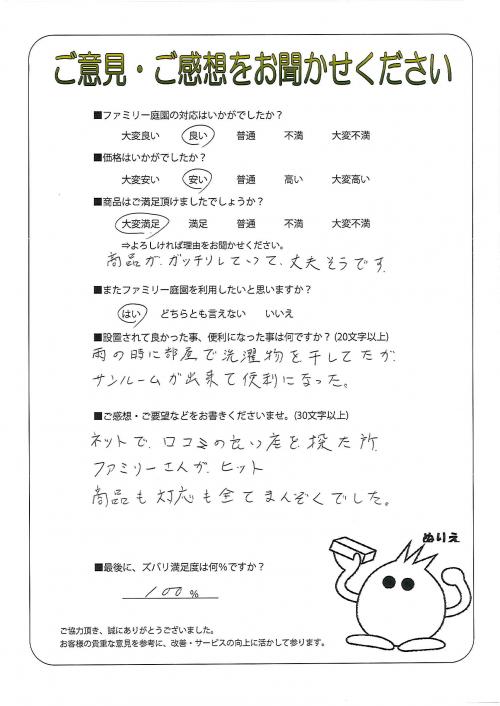 ご意見・ご感想をお聞かせください
■ファミリー庭園の対応はいかがでしたか？
大変良い 良い 普通 不満 大変不満
■価格はいかがでしたか？
大変安い 安い 普通 高い 大変高い
■商品はご満足頂けましたでしょうか？
大変満足 満足 普通 不満 大変不満
⇒よろしければ理由をお聞かせください。
商品が、ガッチリしていて、丈夫そうです。
■またファミリー庭園を利用したいと思いますか？
はい どちらとも言えない いいえ
■設置されて良かった事、便利になった事は何ですか？(20文字以上)
雨の時に部屋で洗濯物を干してたが、
サンルームが出来て便利になった。
■ご感想・ご要望などをお書きくださいませ。(30文字以上)
ネットで、口コミの良い店を、探した所、
ファミリーさんが、ヒット
商品も対応も全てまんぞくでした。
ぬりえ
■最後に、ズバリ満足度は何％ですか？
100％
ご協力頂き、誠にありがとうございました。
お客様の貴重な意見を参考に、改善・サービスの向上に活かして参ります。